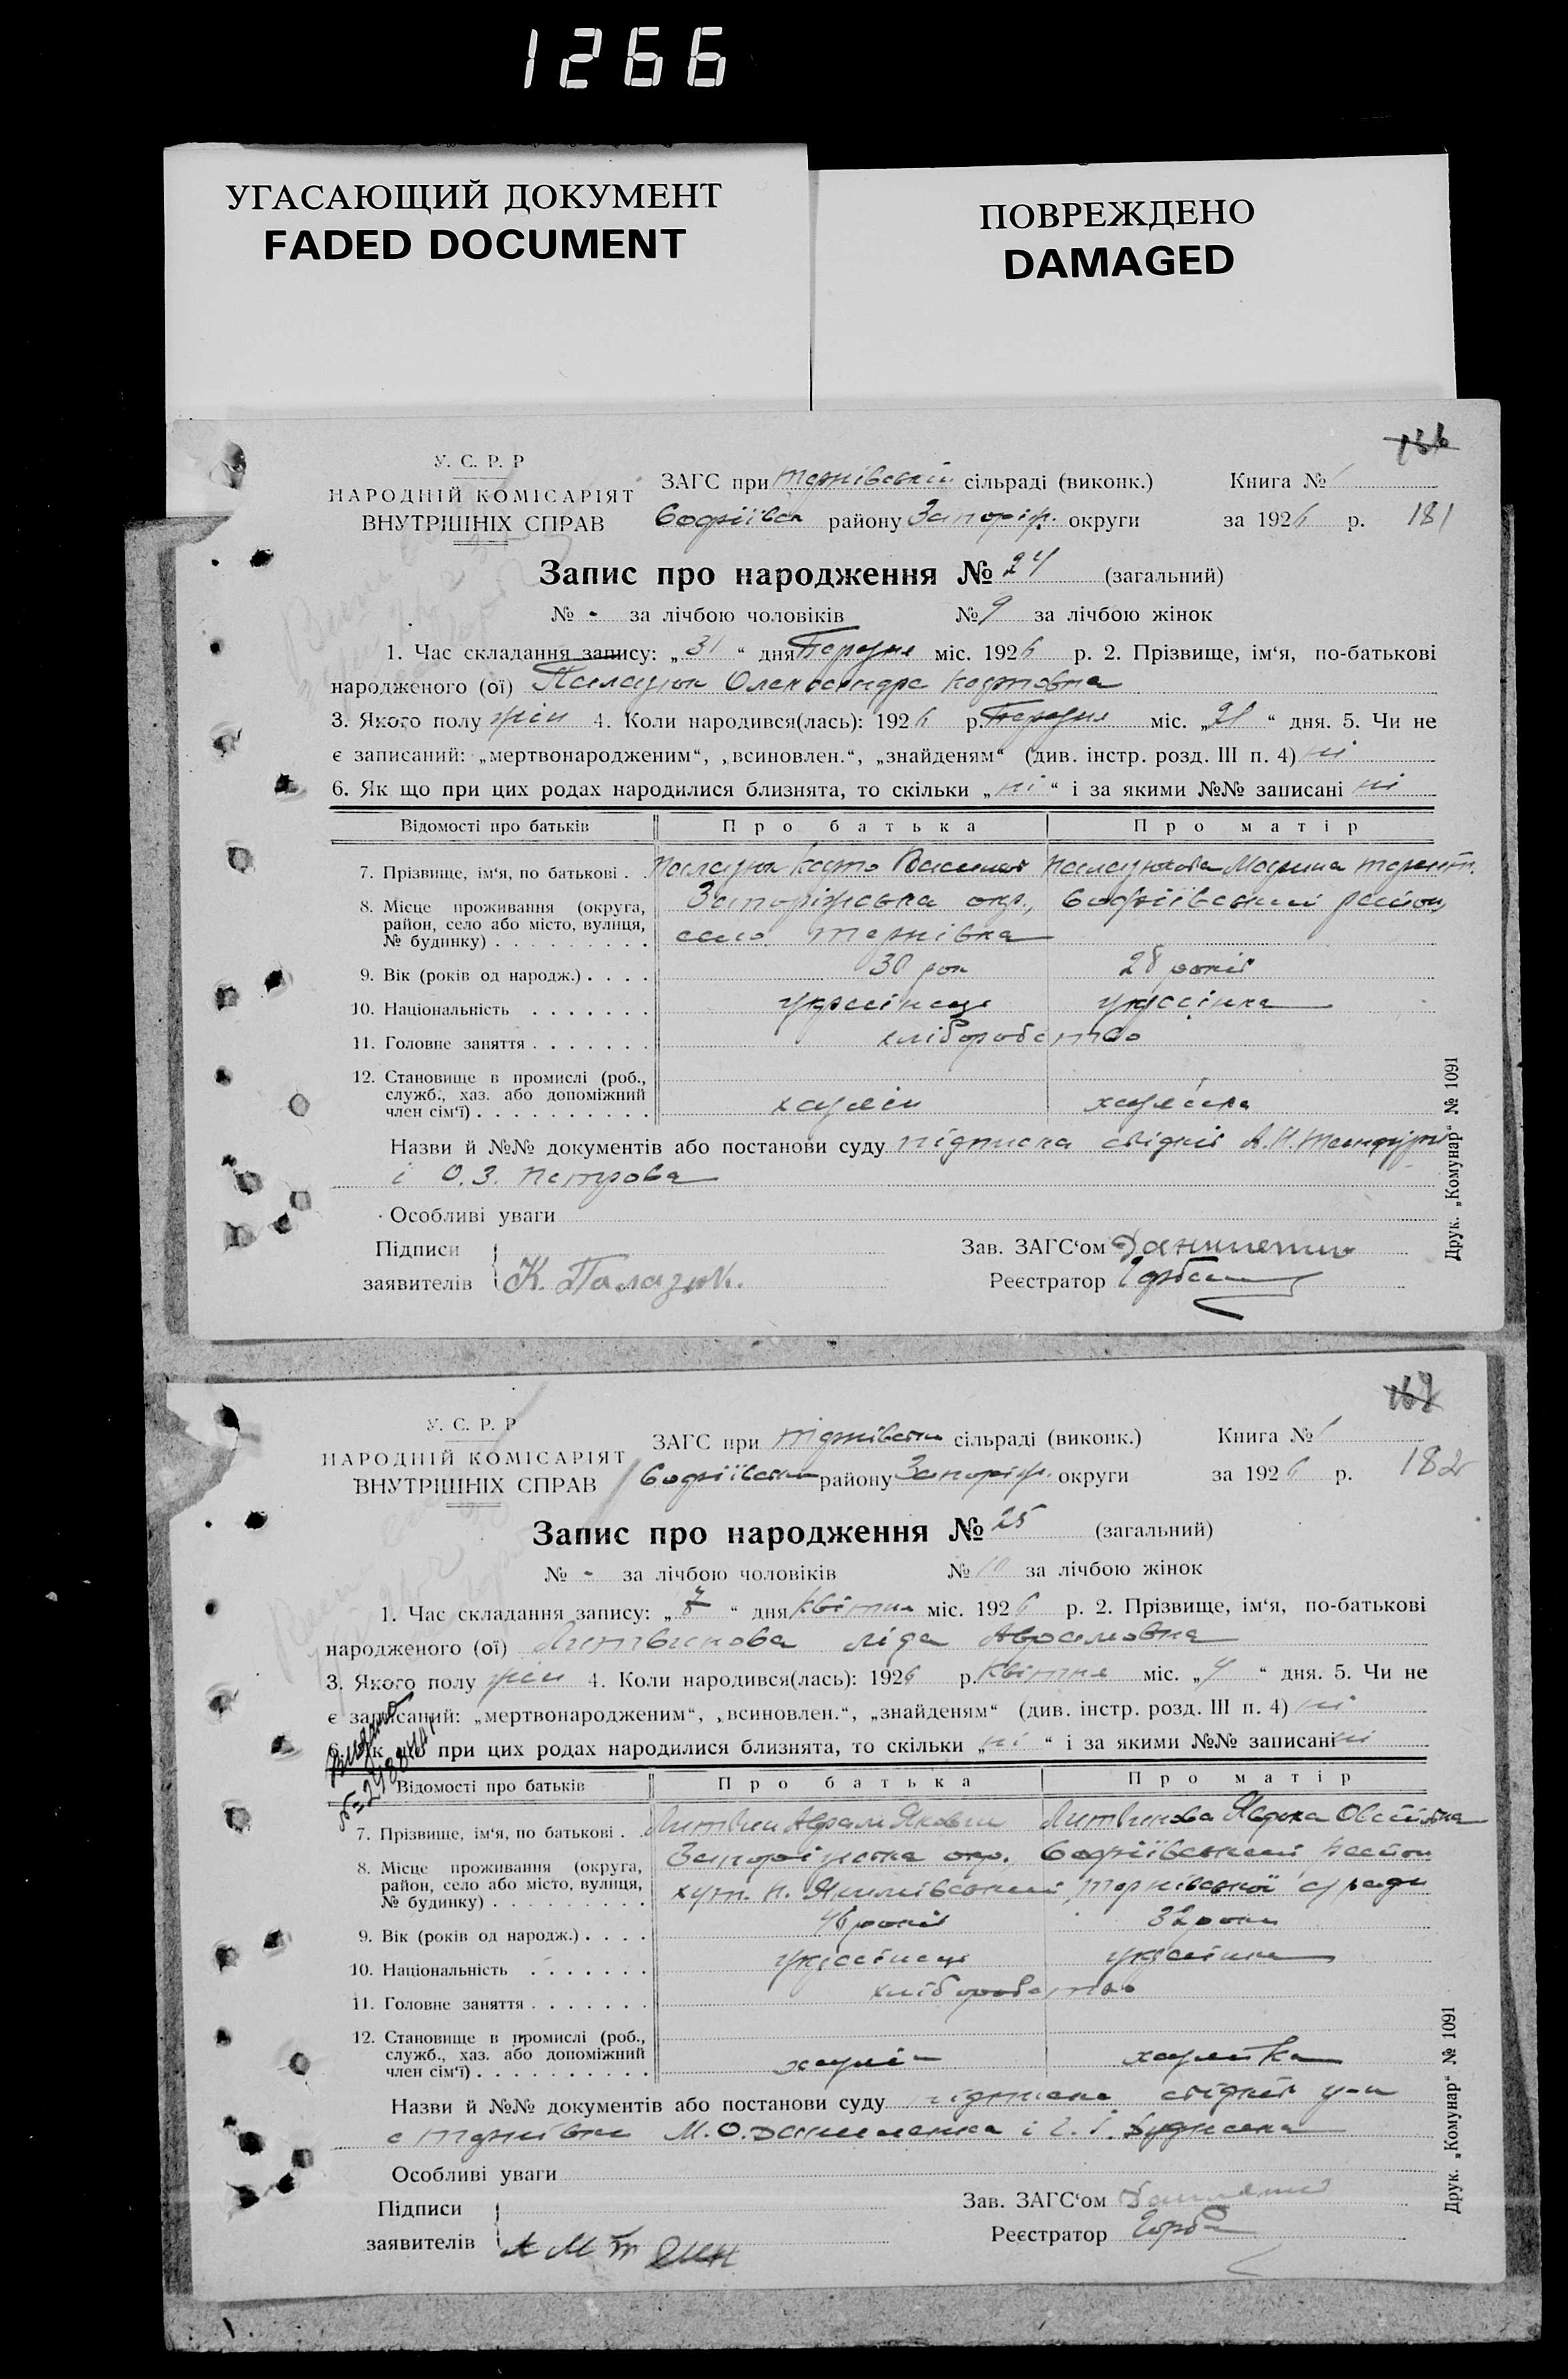 1266
УГАСАЮЩИЙ ДОКУМЕНТ
FADED DOCUMENT
ПОВРЕЖДЕНО
DAMAGED
186
У. С. Р. Р
НАРОДНІЙ КОМІСАРІЯТ
ВНУТРІШНІХ СПРАВ
ЗАГС при Тернівській сільраді (виконк.) Книга № 1
Софіївск району Запоріж. округи за 1926 р. 181
Запис про народження № 24 (загальний)
№ - за лічбою чоловіків № 9 за лічбою жінок
1. Час складання запису: „31“ дня Березня міс. 1926 р. 2. Прізвище, ім‘я, по-батькові
народженого (ої) Палазюк Олександра Карповна
3. Якого полу жін 4. Коли народився(лась): 1926 р. Березня міс. „21“ дня. 5. Чи не
є записаний: „мертвонародженим“, „всиновлен.“, „знайденям“ (див. інстр. розд. III п. 4) ні
6. Як що при цих родах народилися близнята, то скільки „ні“ і за якими №№ записані ні
Відомості про батьків Про батька Про матір
7. Прізвище, ім‘я, по батькові . Палазюк Карпо Васильов Палазюкова Марина Терент.
8. Місце проживання (округа, Запоріжська окр., Софіївський район,
район, село або місто, вулиця,
№ будинку) . . . . . . . . . село Тернівка
9. Вік (років од народж.) . . . . 30 рок 28 років
10. Національність . . . . . . . українець українка
11. Головне заняття . . . . . . . хліборобство
12. Становище в промислі (роб.,
служб., хаз. або допоміжний
член сім‘ї) . . . . . . . . . . хазяїн хазяйка
Назви й №№ документів або постанови суду підписка свідків А. Н.
і О. З. Петрова
Особливі уваги
Підписи Зав. ЗАГС‘ом
заявителів К. Палазюк. Реєстратор Горбань
Друк. „Комунар“ № 1091
У. С. Р. Р
НАРОДНІЙ КОМІСАРІЯТ
ВНУТРІШНІХ СПРАВ
ЗАГС при Тернівськи сільраді (виконк.) Книга № 1
Софіївськи району Запоріж. округи за 1926 р. 182
Запис про народження № 25 (загальний)
№ - за лічбою чоловіків № 10 за лічбою жінок
1. Час складання запису: „7“ дня Квітня міс. 1926 р. 2. Прізвище, ім‘я, по-батькові
народженого (ої) Литвинова Ліда Аврамовна
3. Якого полу жін 4. Коли народився(лась): 1926 р. Квітня міс. „4“ дня. 5. Чи не
є записаний: „мертвонародженим“, „всиновлен.“, „знайденям“ (див. інстр. розд. III п. 4) ні
6. Як що при цих родах народилися близнята, то скільки „ні“ і за якими №№ записані ні
Відомості про батьків Про батька Про матір
7. Прізвище, ім‘я, по батькові . Литвин Аврам Якович Литвинова Явдоха
8. Місце проживання (округа, Запоріжська окр. Софіївський район
район, село або місто, вулиця,
№ будинку) . . . . . . . . . хут. Н. Якимівський Тернівської с/ради
9. Вік (років од народж.) . . . . 46 років 32 роки
10. Національність . . . . . . . українець українка
11. Головне заняття . . . . . . . хліборобство
12. Становище в промислі (роб.,
служб., хаз. або допоміжний
член сім‘ї) . . . . . . . . . . хазяїн хазяйка
Назви й №№ документів або постанови суду підписка свідків
с Тернівки М. О. Даниленка і
Особливі уваги
Підписи Зав. ЗАГС‘ом
заявителів Реєстратор Горбань
Друк. „Комунар“ № 1091